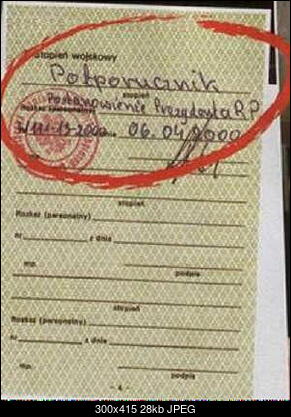 Stopień wojskowy
Podporucznik
stopień
Postanowienie Prezydenta RP
Rozkaz (personalny)
06.04.2000
stopień
Rozkaz (personalny)
nr z dnia
mp. podpis
stopień
Rozkaz (personalny)
nr z dnia
mp. podpis
- 4 -
300x415 28kb JPEG